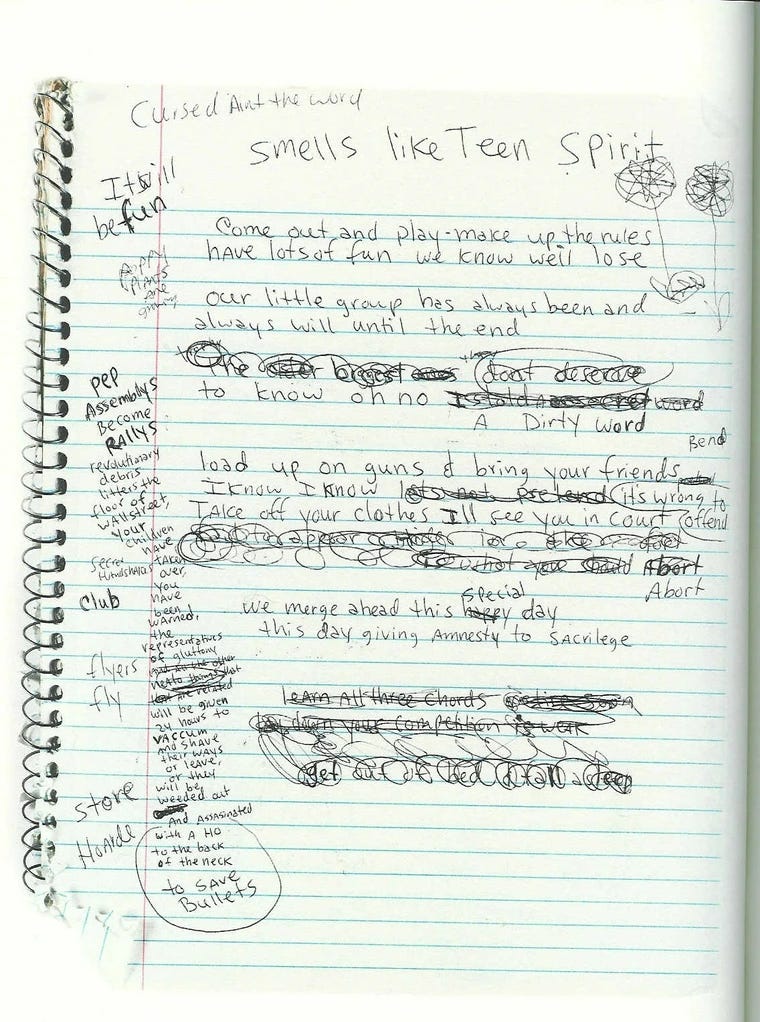 Cursed Aint the word
smells like Teen Spirit
Itwill
be fun
Come out and play-make up the rules
HAve lots of fun we know we'll lose
poppy
plants
are
our little group has always been and
always will until the end
the biggest they dont deserve
to know oh no word
A Dirty word
Bend
load up on guns & bring your friends
I know I know lets not pretend its wrong to
offend
TAke off your clothes I'll see you in court
what you should Abort
Abort
special
we merge ahead this happy day
this day giving Amnesty to SAcrilege
leArn All three Chords
down your competition is weak
get out of bed
pep
Assemblys
Become
RAllys
revolutionary
debris
litters the
floor of
wallstreet,
your
children
HAve
taken
over,
you
HAve
been
wArned,
the
representatives
of gluttony
And All the other
that
are related
will be given
24 hours to
vAccum
And shave
their ways
or leave,
or they
will be
weeded out
And AssAsinated
with A Ho
to the back
of the neck
to SAve
Bullets
secret
Club
flyers
fly
store
HoArde